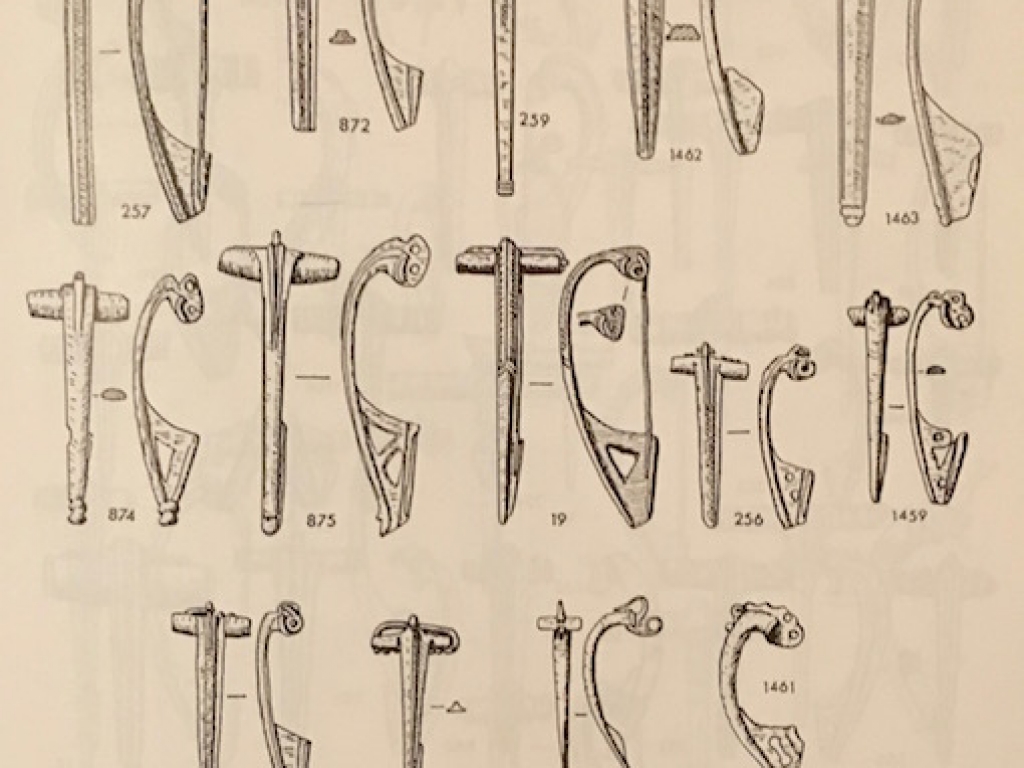 872
259
1462
257
1463
874
875
19
256
1459
1461